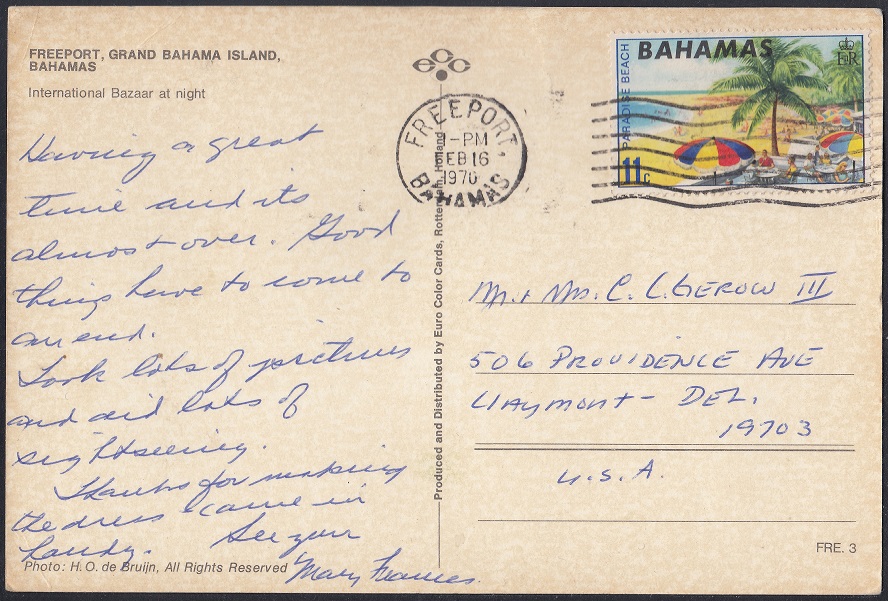 FREEPORT, GRAND BAHAMA ISLAND,
BAHAMAS
International Bazaar at night
Having a great
time and its
almost over. Good
things have to come to
an end.
Took lots of pictures
and did lots of
sightseeing.
Thanks for making
the dress - came in
handy. See you
Mary Frances
Photo: H. O. de Bruijn, All Rights Reserved
ecc
FREEPORT,
-PM
FEB 16
1970
BAHAMAS
Produced and Distributed by Euro Color Cards, Rotterdam, Holland
PARADISE BEACH
BAHAMAS
E II R
11c
Mr + Mrs. C. C. GEROW III
506 PROVIDENCE AVE
Claymont - DEL.
19703
U.S.A.
FRE. 3